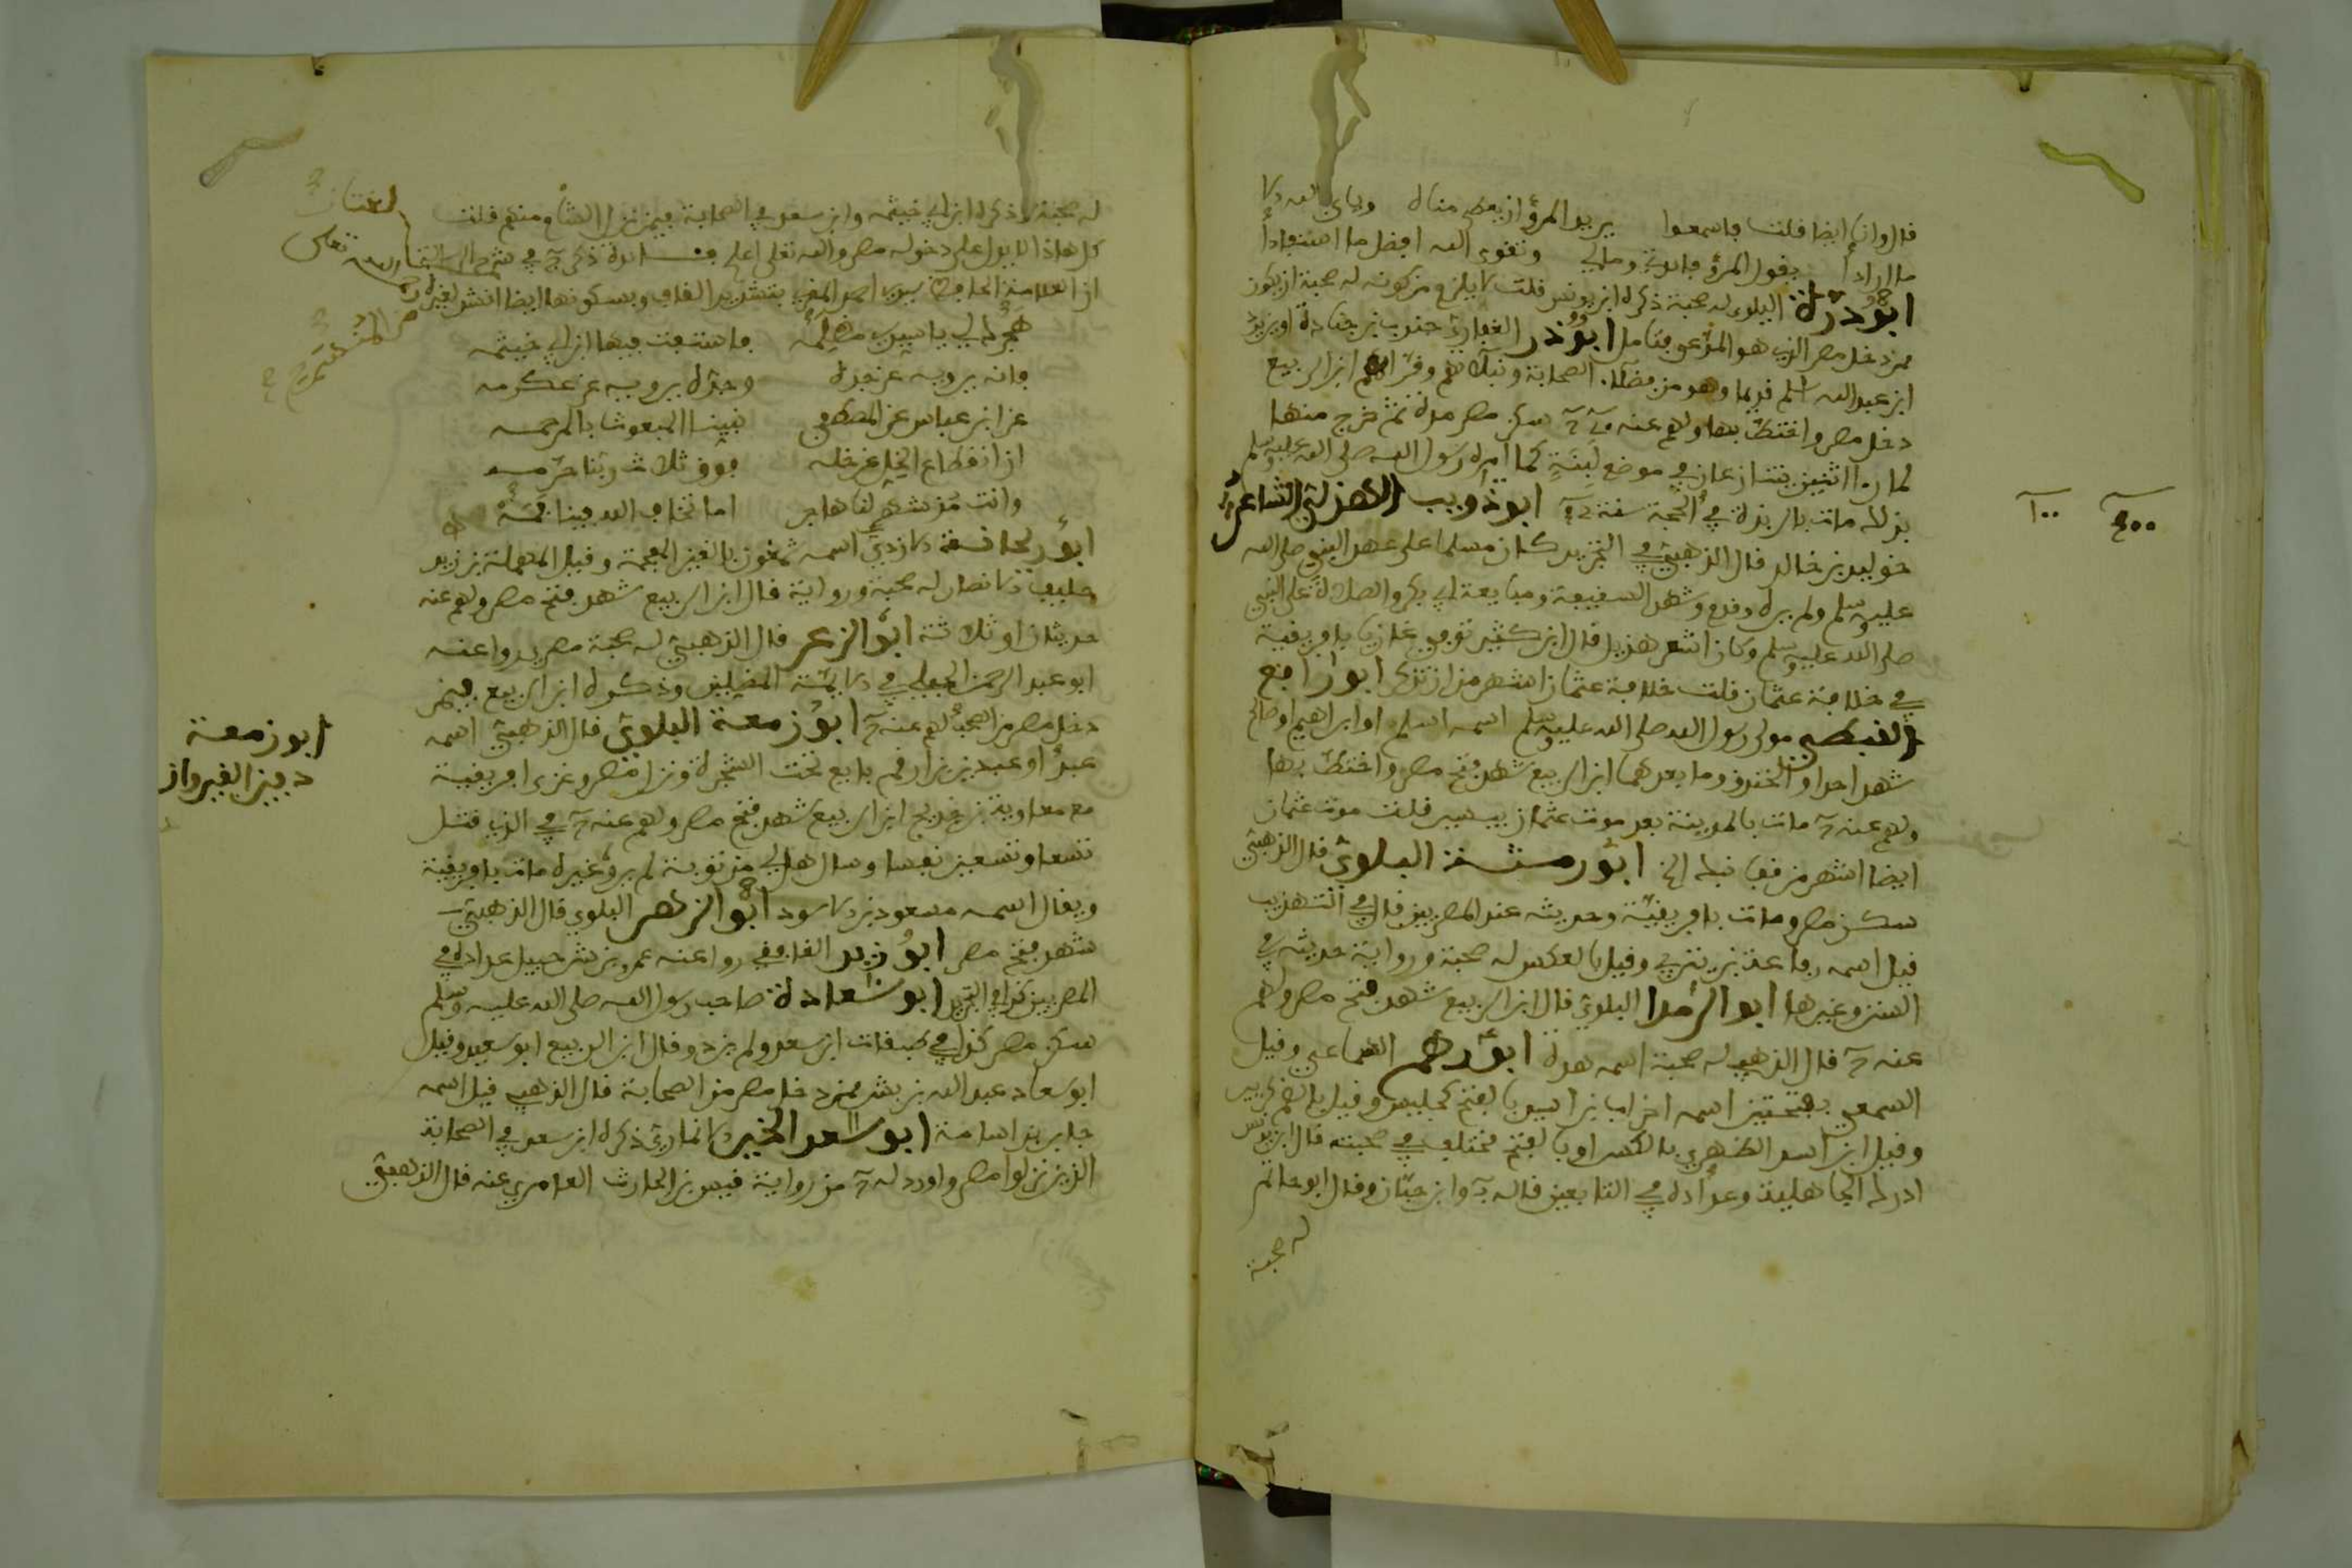 قال وانا ايضا قلت فاسمعوا يريد المرؤ ان يعطى مناه ويابى الله الا
ما ارادا يقول المرؤ فايدتي ومالي وتقوى الله افضل ما استفادا
ابو درة البلوى له صحبة ذكره ابن يونس قلت لا يلزم من كونه له صحبة ان يكون
ممن دخل مصر الذي هو المدعى فتامل ابو ذر الغفاري جندب بن جنادة او بريد
ابن عبد الله اسلم قديما وهو من فضلاء الصحابة ونبلائهم وقرائهم ابن الربيع
دخل مصر واختط بها ولهم عنه سكن مصر مدة ثم خرج منها
لما راى اثنين يتنازعان في موضع لبنة كما امره رسول الله صلى الله عليه وسلم
بذلك مات بالربذة في الحجة سنة ابو ذؤيب الهذلي الشاعر
خويلد بن خالد قال الذهبي في التجريد كان مسلما على عهد النبي صلى الله
عليه وسلم ولم يره وقدم وشهد السقيفة ومبايعة ابي بكر والصلاة على النبي
صلى الله عليه وسلم وكان اشعر هذيل قال ابن كثير توفي غازيا بافريقية
في خلافة عثمان قلت خلافة عثمان اشهر من ان تذكر ابو رافع
القبطي مولى رسول الله صلى الله عليه وسلم اسمه اسلم او ابراهيم او صالح
شهد احدا والخندق وما بعدهما ابن الربيع شهد فتح مصر واختط بها
ولهم عنه مات بالمدينة بعد موت عثمان بيسير قلت موت عثمان
ايضا اشهر من قفا نبك الخ ابو رمثة البلوي قال الذهبي
سكن مصر ومات بافريقية وحديثه عند المصريين قال في التهذيب
قيل اسمه رفاعة بن يثربي وقيل بالعكس له صحبة ورواية حديثه في
السنن وغيرها ابو الرمدا البلوي قال ابن الربيع شهد فتح مصر ولهم
عنه قال الذهبي له صحبة اسمه ابو رهم السماعي وقيل
السمعي بفتحتين اسمه احزاب بن اسيد بالفتح وقيل بالضم
وقيل ابن اسد الظهري بالكسر او بالفتح مختلف في صحبته قال ابن يونس
ادرك الجاهلية وعداده في التابعين قاله وابن حبان وقال ابو حاتم
له صحبة
٤٠٠ ١٠٠
له صحبة وذكره ابن ابي خيثمة وابن سعد في الصحابة فيمن نزل الشام ومنهم قلت
كل هذا لا يدل على دخوله مصر والله تعلى اعلم
ان العلامة الحافظ احمد المقري بتشديد القاف وبسكونها ايضا انشد لغيره
هجرك لي يا سيدي مظلمه فاستفت فيها ابن ابي خيثمه
فانه يرويه عن جده وجده يرويه عن عكرمه
عن ابن عباس عن المصطفى نبينا المبعوث بالمرحمه
ان انقطاع الخل عن خله فوق ثلاث ربنا حرمه
وانت مذ شهر لنا هاجر اما تخاف الله فينا فمه
ابو ريحانة الازدي اسمه شمغون بالغين المعجمة وقيل المهملة بن زيد
حليف الانصار له صحبة ورواية قال ابن الربيع شهد فتح مصر ولهم عنه
حديثان او ثلاثة ابو الزعر قال الذهبي له صحبة مصري روا عنه
ابو عبد الرحمن الحبلي في الايمة المضلين وذكره ابن الربيع فيمن
دخل مصر من الصحب ولهم عنه ابو زمعة البلوي قال الذهبي اسمه
عبد او عبيد بن ارقم بايع تحت الشجرة ونزل مصر وغزى افريقية
مع معاوية بن خديج ابن الربيع شهد فتح مصر ولهم عنه في الذي قتل
تسعا وتسعين نفسا وسال هل لي من توبة لم يرو غيره مات بافريقية
ويقال اسمه مسعود بن الاسود ابو الزهر البلوي قال الذهبي
شهد فتح مصر ابو زيد الغافقي روا عنه عمرو بن شرحبيل عداده في
المصريين كذا في التجريد ابو سعادة صاحب رسول الله صلى الله عليه وسلم
سكن مصر كذا في طبقات ابن سعد ولم يزد وقال ابن الربيع ابو سعيد وقيل
ابو سعاد عبد الله بن بشر ممن دخل مصر من الصحابة قال الذهبي قيل اسمه
جابر بن اسامة ابو سعد الخير الانماري ذكره ابن سعد في الصحابة
الذين نزلوا مصر واورد له من رواية قيس بن الحارث العامري عنه قال الذهبي
ابو زمعة
دفين القيروان